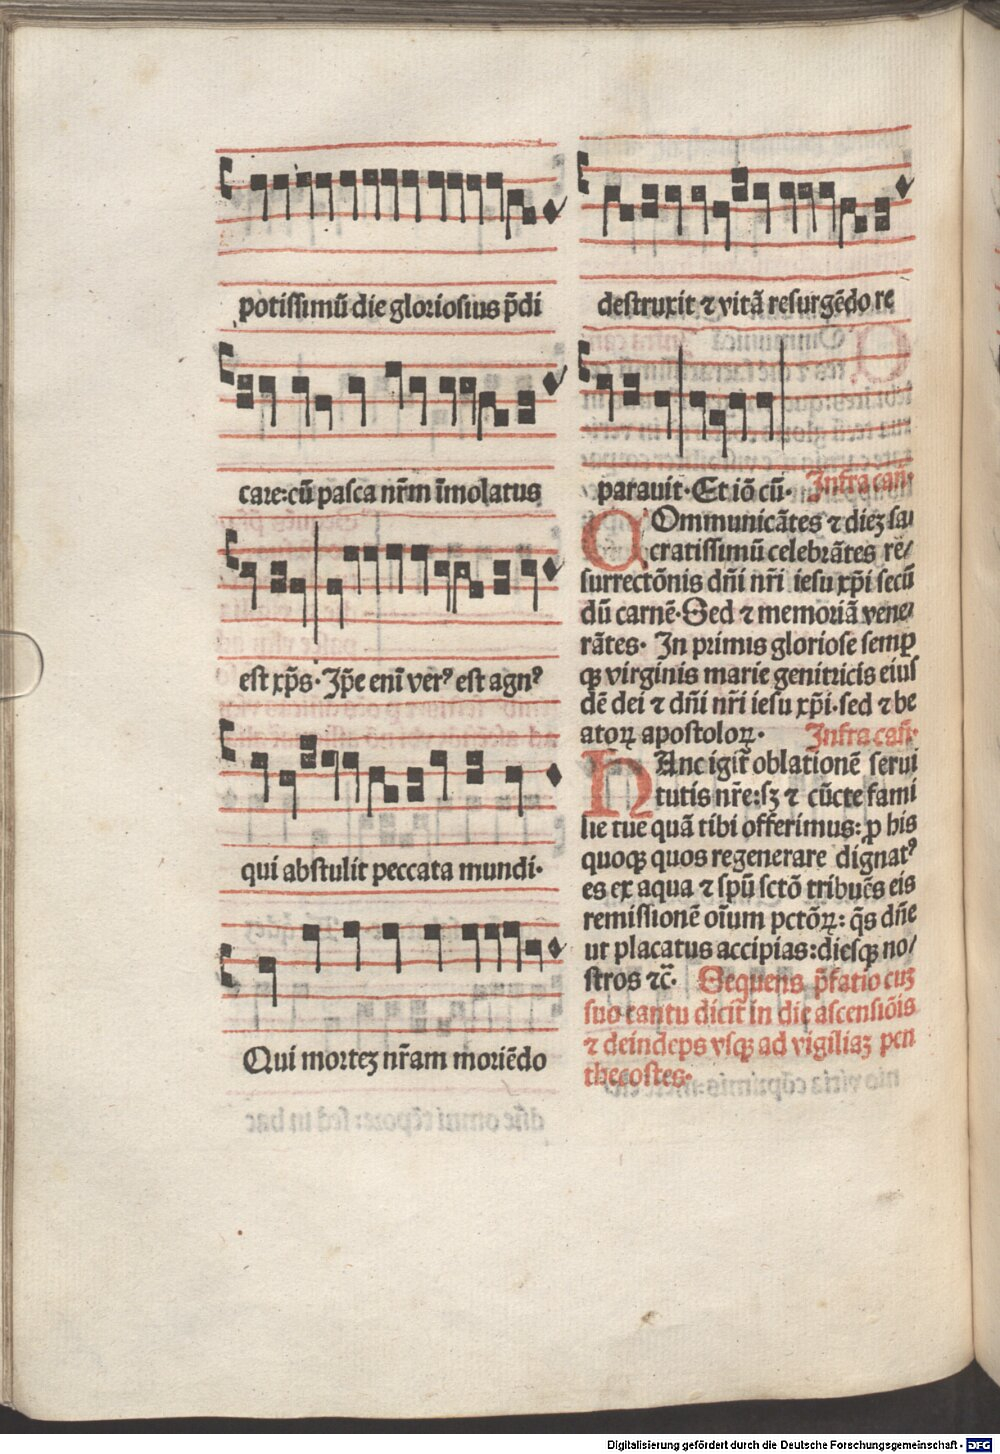 potissimū die gloriosius p̄di
care:cū pasca nr̄m īmolatus
est xp̄s. Ip̄e eni̅ verꝰ est agnꝰ
qui abstulit peccata mundi.
Qui mortez nr̄am moriēdo
destruxit ⁊ vitā resurgēdo re
parauit. Et iō cū. Infra can̄.
COmmunicātes ⁊ diez sa
cratissimū celebrātes re/
surrectōnis dn̄i nr̄i iesu xp̄i secū
dū carnē. Sed ⁊ memoriā vene
rātes. In primis gloriose semꝑ
qꝫ virginis marie genitricis eius
dē dei ⁊ dn̄i nr̄i iesu xp̄i. sed ⁊ be
atoꝝ apostoloꝝ. Infra can̄.
HAnc igit̄ oblationē serui
tutis nr̄e: sꝫ ⁊ cūcte fami
lie tue quā tibi offerimus: ꝓ his
quoqꝫ quos regenerare dignatꝰ
es ex aqua ⁊ spū sctō tribuēs eis
remissionē oīum pctōꝝ: q̄s dn̄e
ut placatus accipias: diesqꝫ no/
stros ⁊c̄. Sequens p̄fatio cuz
suo cantu dicit̄ in die ascensiōis
⁊ deindeps vsqꝫ ad vigiliaꝫ pen
thecostes.
Digitalisierung gefördert durch die Deutsche Forschungsgemeinschaft - DFG